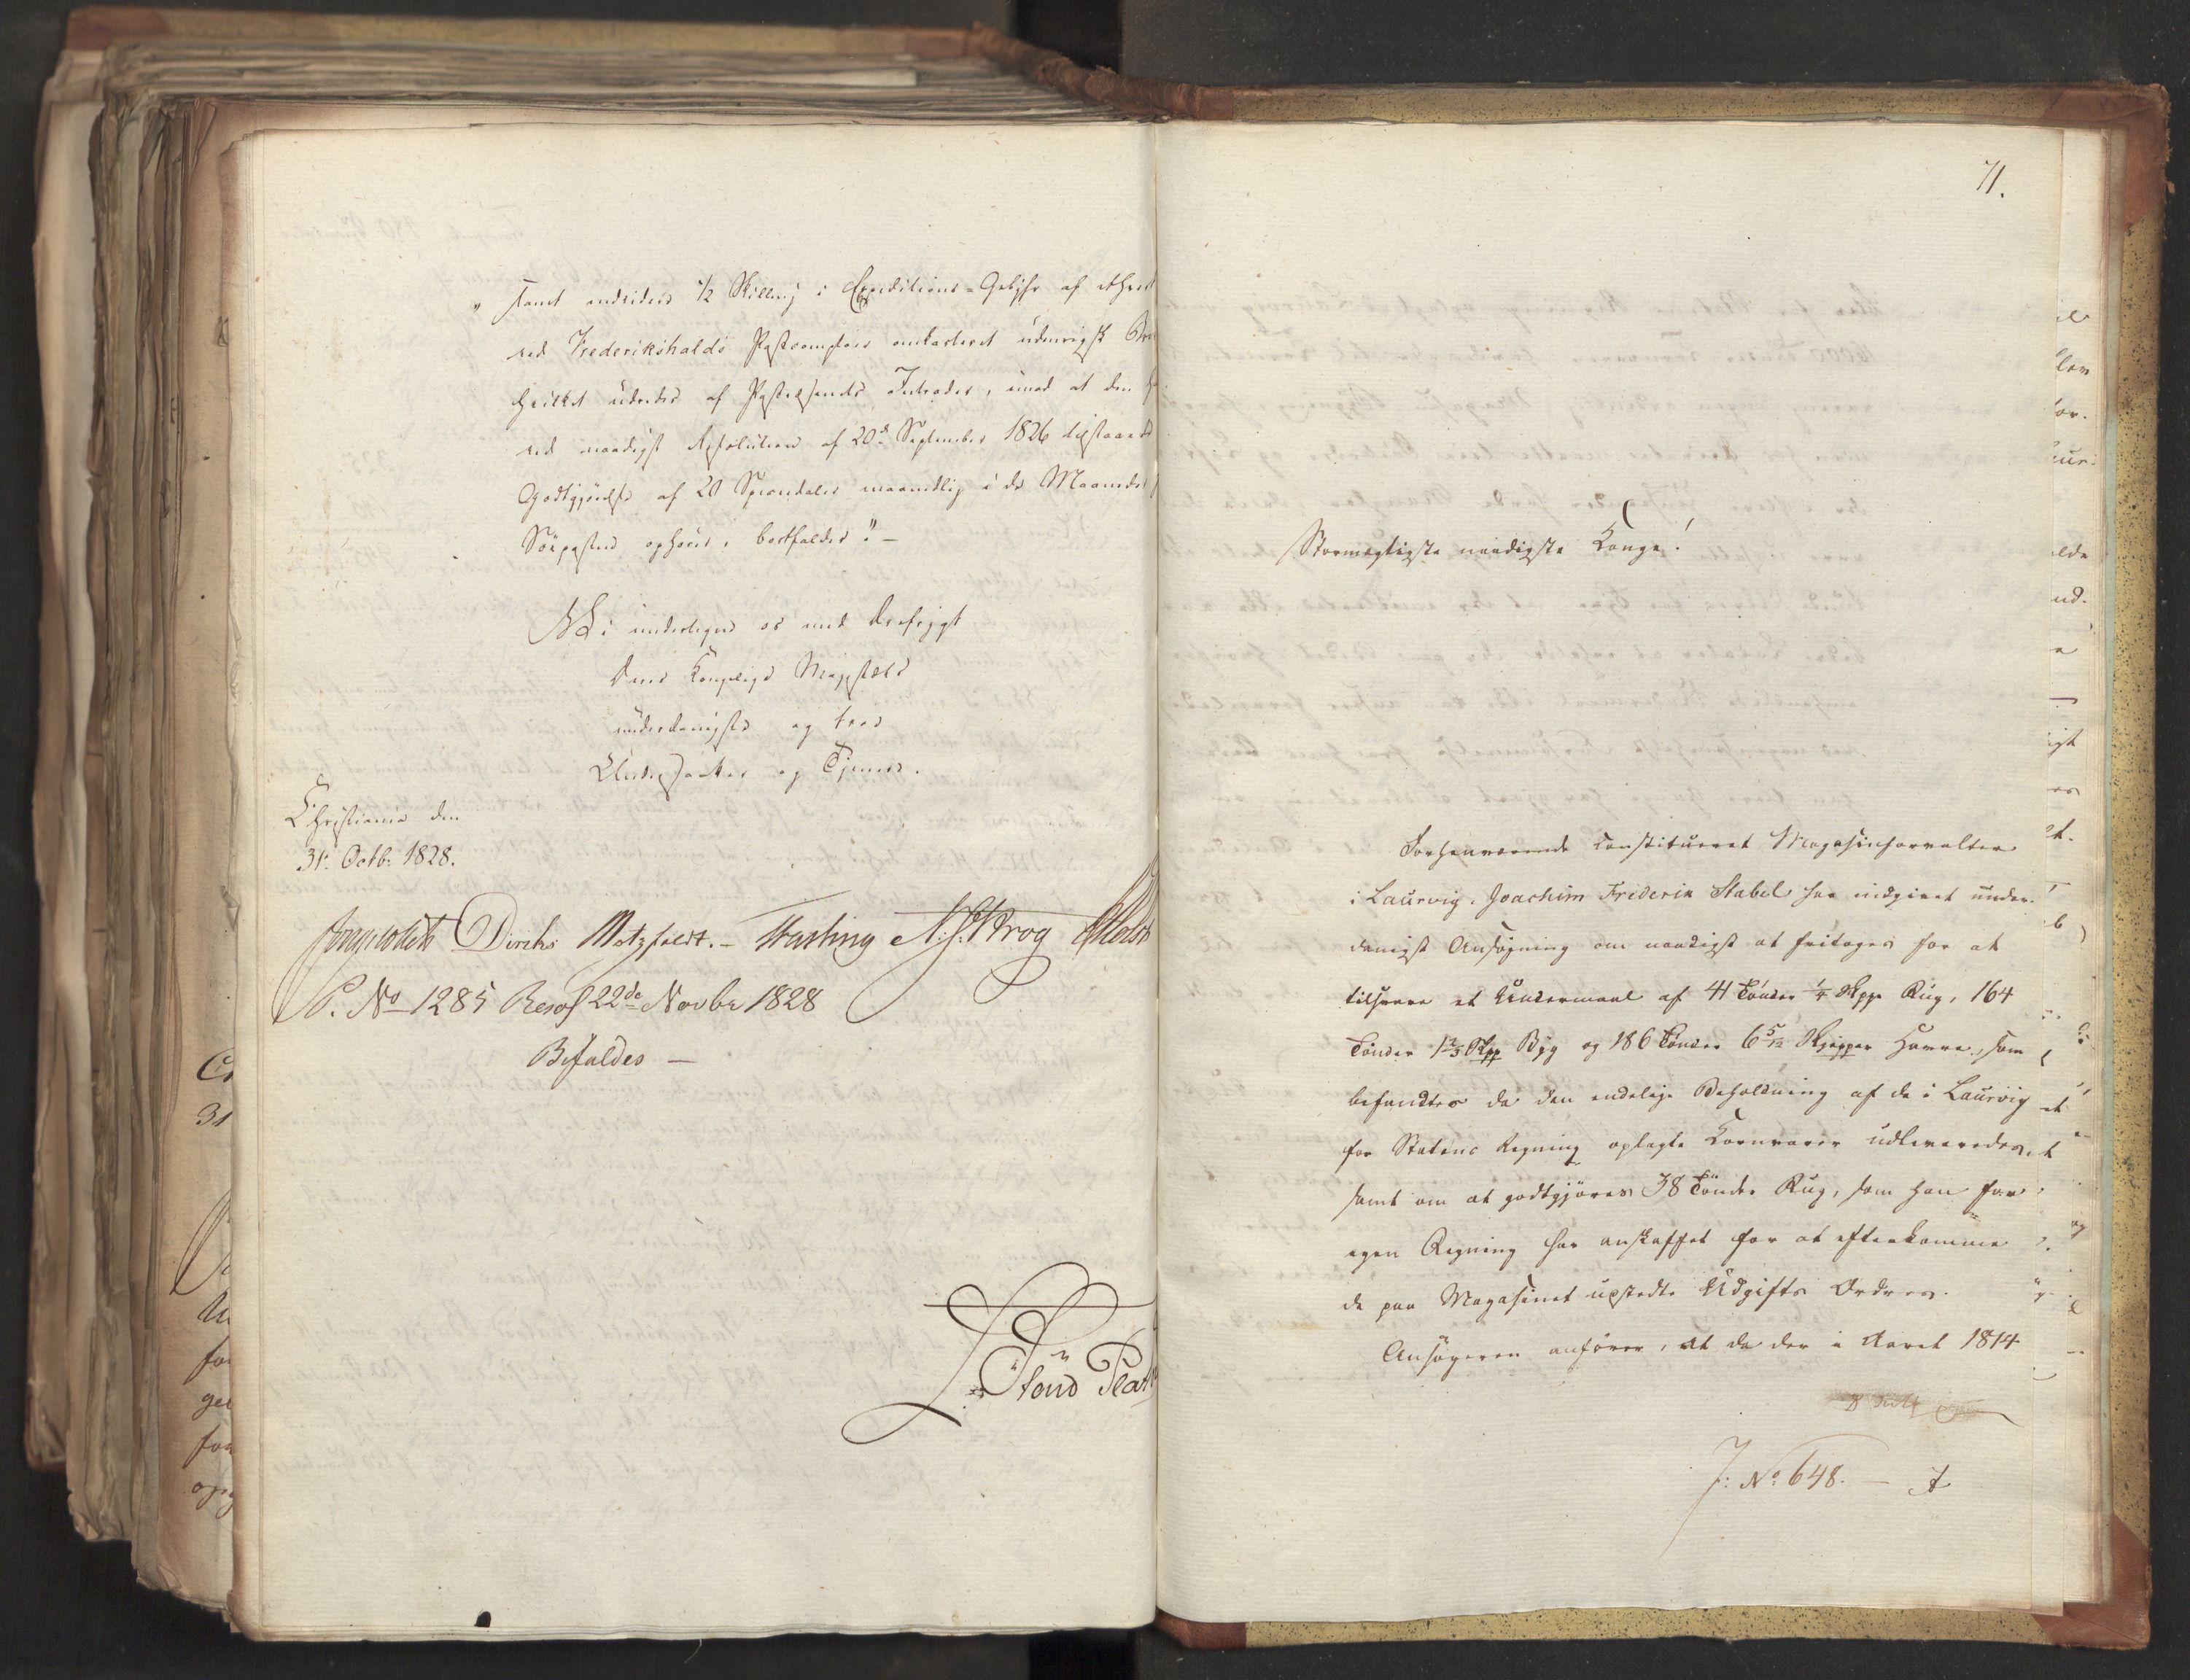 "samt endvidere 1/2 Skilling i Expeditions-Gebyhr af ethvert
ved Frederikshalds Postcomptoir omkarteret udenrigsk
hvilket udredes af Postvæsenets Intrader, imod at den
ved naadigst Resolution af 20de September 1826 tilstaaede
Godtgjørelse af 20 Speciedaler maanedlig i de Maaneder
Söeposten ophører, bortfalder." —
Vi undertegne os med Ærefrygt
Deres Kongelige Majestæts
underdanigste og troe
Undersaatter og Tjenere.
Christiania den
31. Octb: 1828.
Diriks Motzfeldt. — N. J. Krog
P. No 1285 Resol 22de Novbr 1828
Bifaldes —
71.
Stormægtigste naadigste Konge!
Forhenværende constitueret Magasinforvalter
i Laurvig, Joachim Friderik Stabel har indgivet under-
danigst Ansøgning om naadigst at fritages for at
tilsvare et Undermaal af 41 Tönder 1/4 Skppe Rug, 164
Tönder 1 2/3 Skpp Byg og 186 Tönder 6 5/12 Skjepper Havre, som
befandtes da den endelige Beholdning af de i Laurvig
for Statens Regning oplagte Kornvarer udleveredes,
samt om at godtgjöres 38 Tönder Rug, som han for
egen Regning har anskaffet for at efterkomme
de paa Magasinet udstedte Udgifts Ordres.
Ansögeren anförer, at da der i Aaret 1814
J: No 648. — A